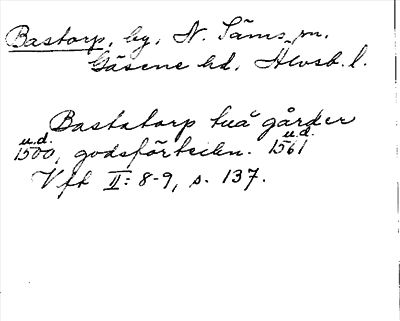 Bastorp, by, N. Säms sn.
Gäsene hd, Älvsb. l.
Bastatorp tuå gårder
u.d. u.d.
1500, godsförteckn. 1561
Vfh II: 8-9, s. 137.